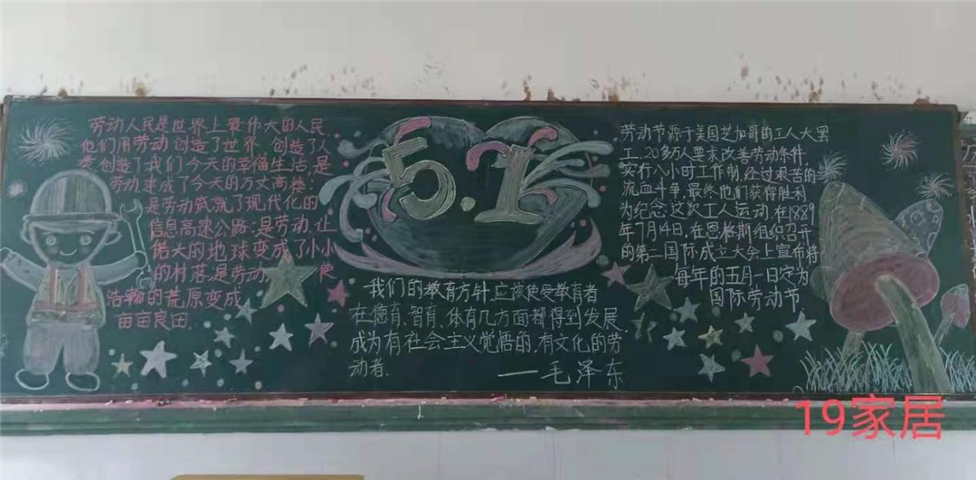 劳动人民是世界上最伟大的人民
他们用劳动创造了世界,创造了人
类创造了我们今天的幸福生活,是
劳动建成了今天的万丈高楼;
是劳动筑就了现代化的
信息高速公路;是劳动,让
偌大的地球变成了小小
的村落是劳动
浩瀚的荒原变成
亩亩良田.
5.1
我们的教育方针,应该使受教育者
在德育、智育、体育几方面都得到发展,
成为有社会主义觉悟的,有文化的劳
动者.
——毛泽东
劳动节源于美国芝加哥的工人大罢
工,20多万人要求改善劳动条件,
实行八小时工作制,经过艰苦的
流血斗争,最终他们获得胜利
为纪念这次工人运动在1889
年7月14日,在恩格斯组织召开
的第二国际成立大会上宣布将
每年的五月一日定为
国际劳动节
19家居